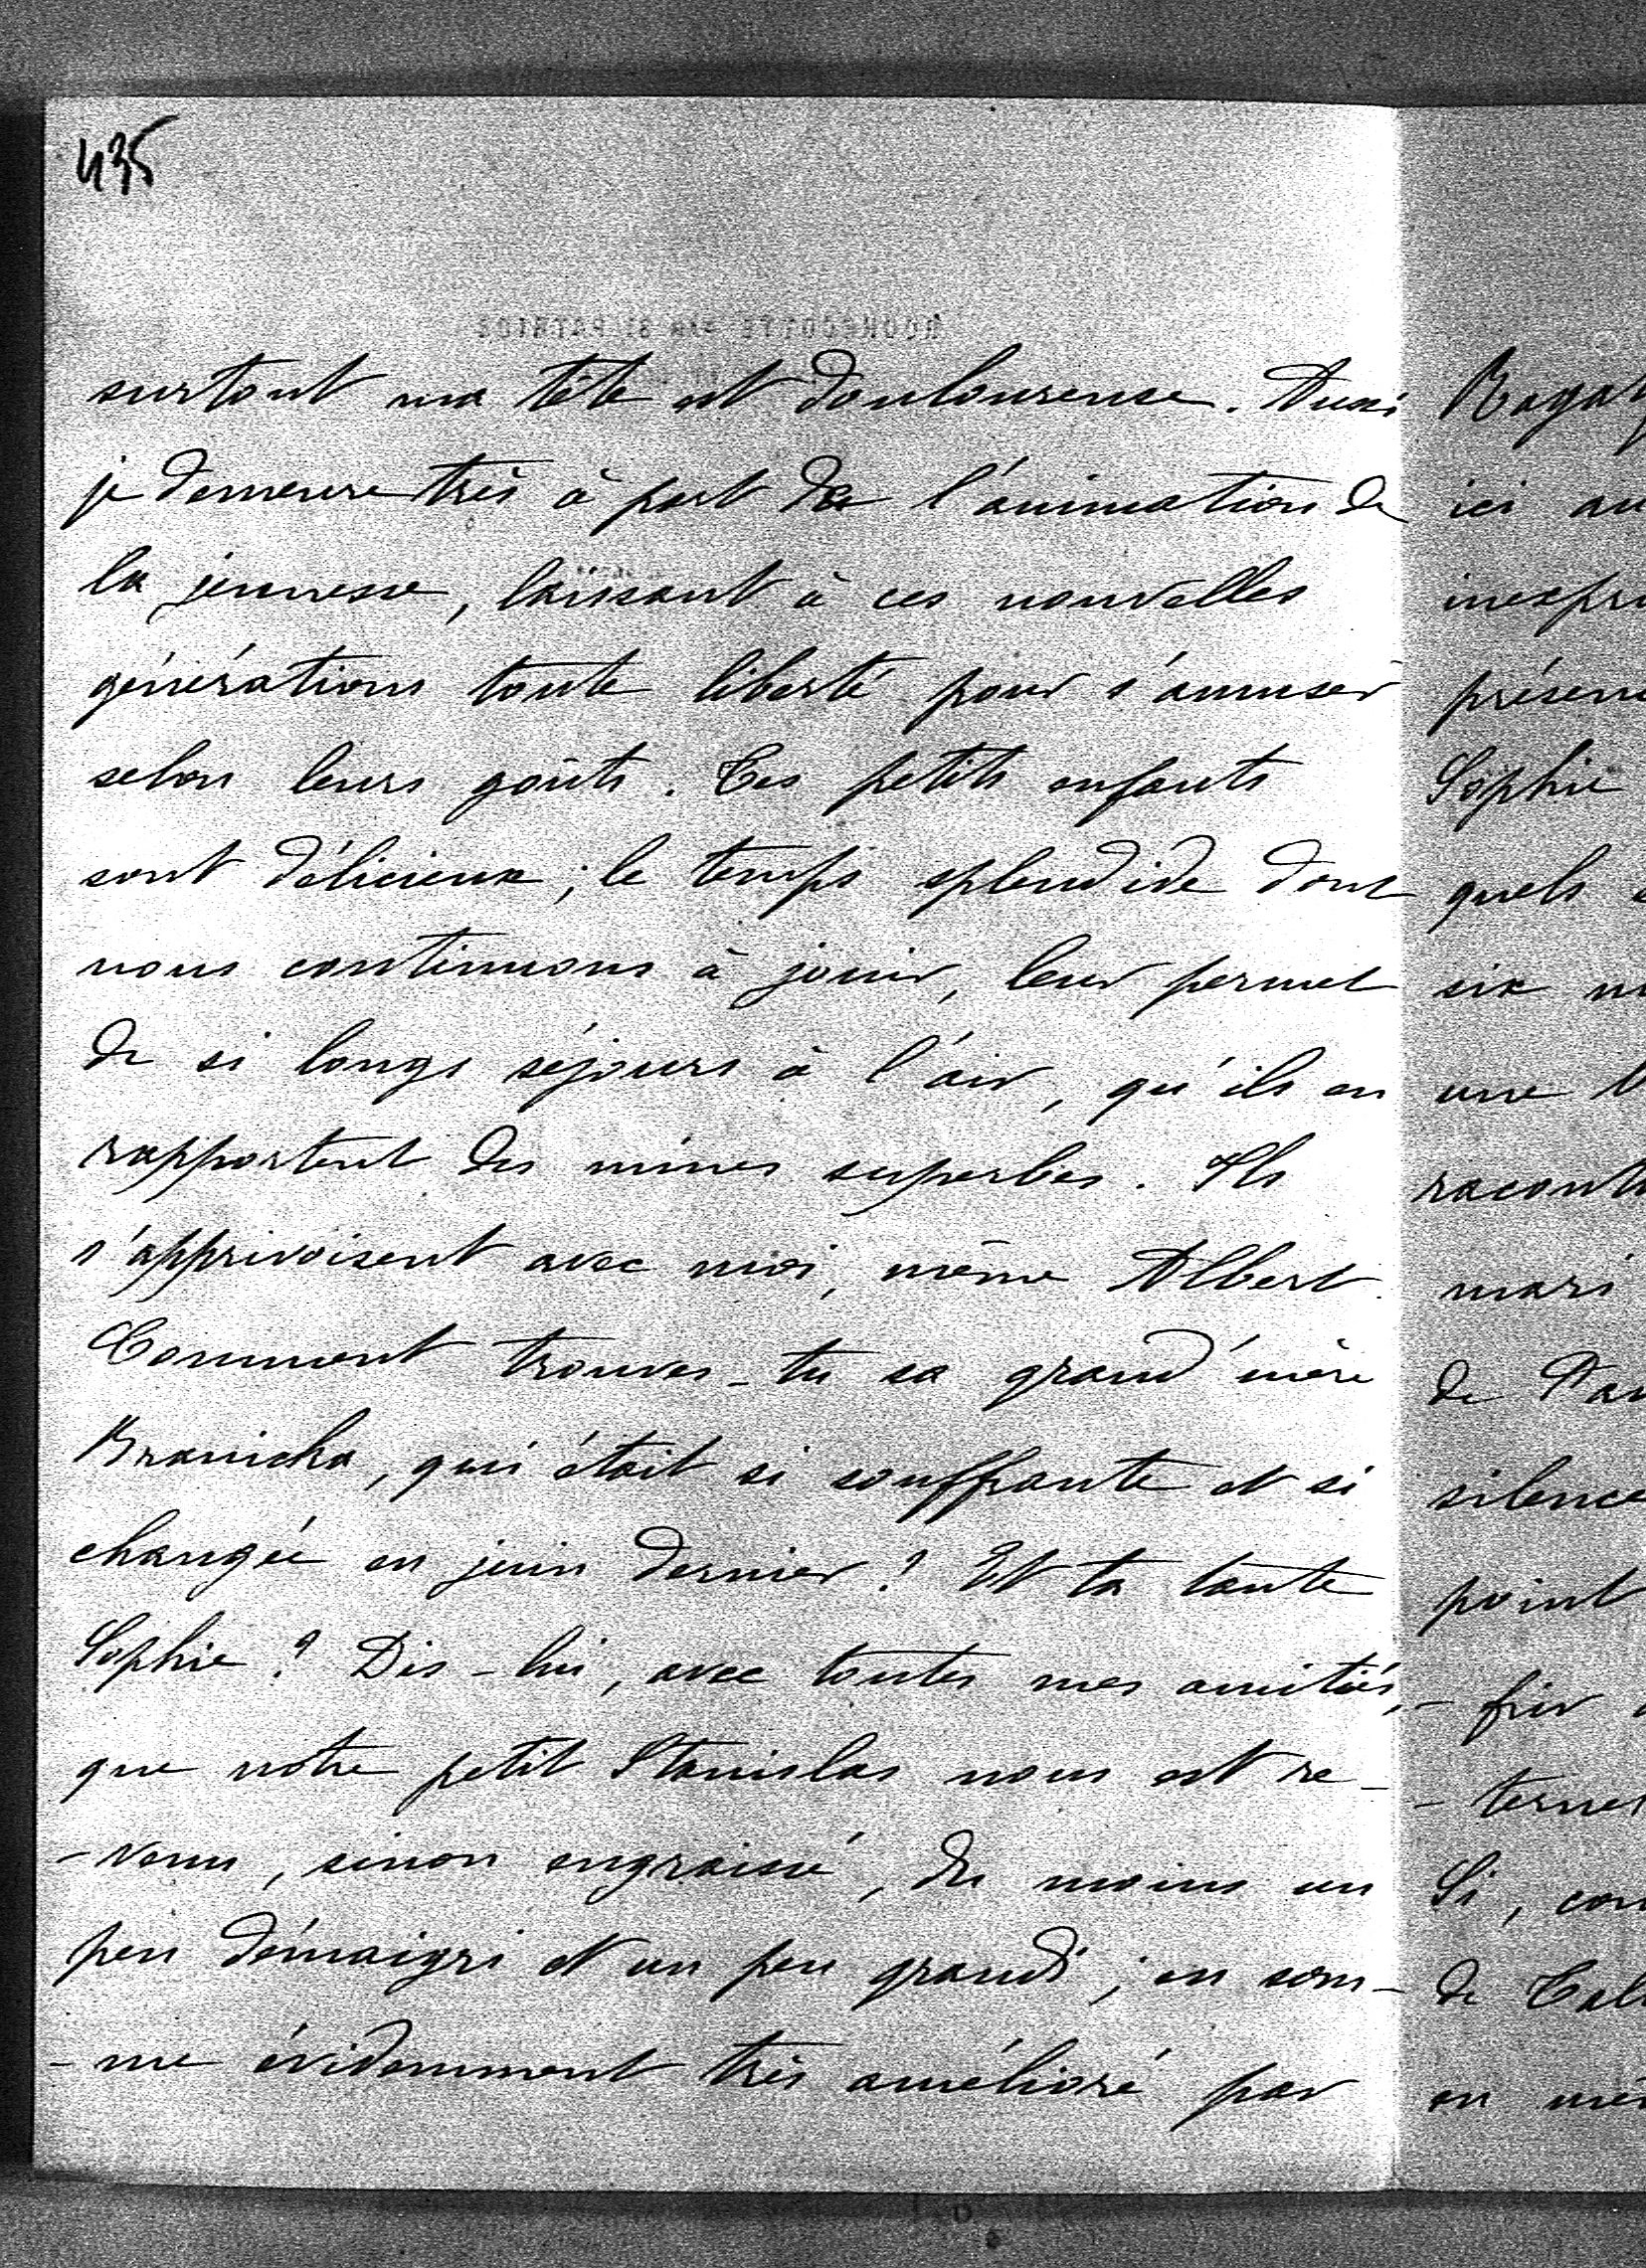 435
surtout ma tête est douloureuse. Aussi
je demeure très à part de l'animation de
la jeunesse, laissant à ces nouvelles
générations toute liberté pour s'amuser
selon leurs goûts. Ces petits enfants
sont délicieux ; le temps splendide dont
nous continuons à jouir, leur permet
de si longs séjours à l'air, qu'ils en
rapportent des mines superbes. Ils
s'apprivoisent avec moi, même Albert.
Comment trouves-tu sa grand'mère
Branicka, qui était si souffrante et si
changée en juin dernier ? Et ta tante
Sophie ? Dis-lui, avec toutes mes amitiés,
que notre petit Stanislas nous est re-
-venu, sinon engraissé, du moins un
peu démaigri et un peu grandi ; en som-
-me évidemment très amélioré par
Ragat
ici au
inexpri
présen
Sophie
quels
six
une
racont
mari
de
silence
point
- frir
- ternel
Si, com
de
en mê